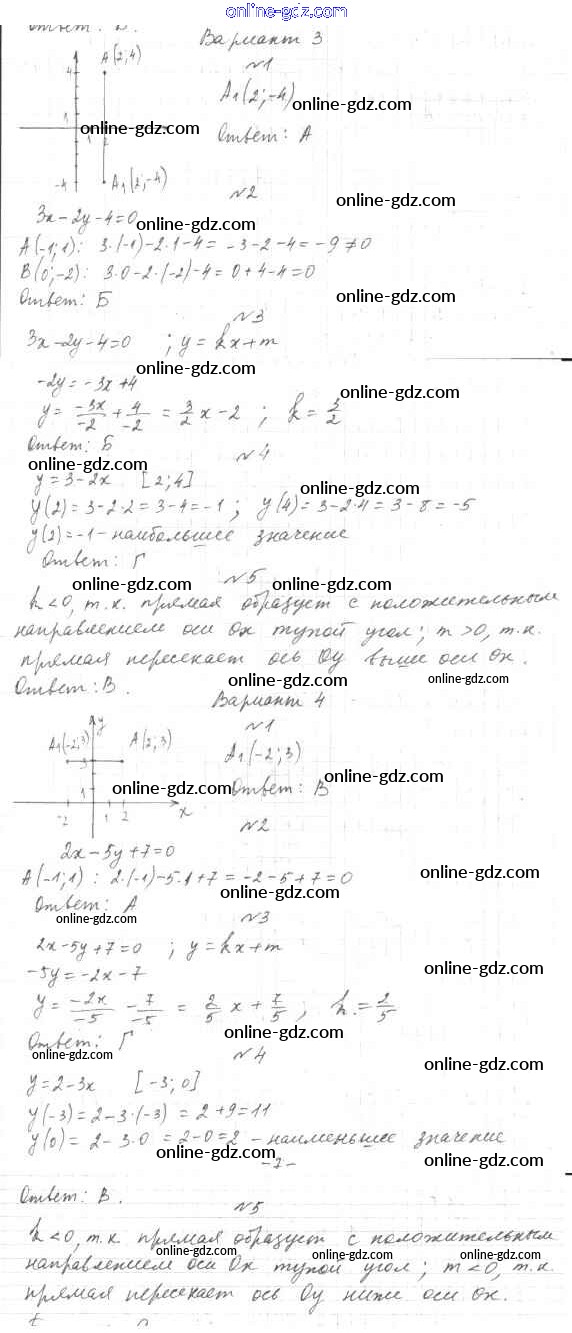 online-gdz.com
Ответ:
Вариант 3
№1
A(2;4)
4
A₁(2;-4)
online-gdz.com
1
online-gdz.com
2
Ответ: А
-4
A₁(2;-4)
№2
online-gdz.com
3x-2y-4=0
online-gdz.com
A(-1;1): 3·(-1)-2·1-4= -3-2-4=-9≠0
B(0;-2): 3·0-2·(-2)-4=0+4-4=0
Ответ: Б
online-gdz.com
№3
3x-2y-4=0 ; y=kx+m
online-gdz.com
-2y=-3x+4
online-gdz.com
y= -3x/-2 + 4/-2 = 3/2 x-2 ; k= 3/2
Ответ: Б
№4
online-gdz.com
y=3-2x [2;4]
online-gdz.com
y(2)=3-2·2=3-4=-1; y(4)=3-2·4=3-8=-5
y(2)=-1-наибольшее значение
Ответ: Г
№5
online-gdz.com
online-gdz.com
k<0, т.к. прямая образует с положительным
направлением оси Ох тупой угол; m>0, т.к.
прямая пересекает ось Оу выше оси Ох.
Ответ: В.
online-gdz.com
online-gdz.com
Вариант 4
№1
y
A₁(-2;3)
A(2;3)
3
A₁(-2;3)
online-gdz.com
1
online-gdz.com
Ответ: В
-2
1
2
x
№2
2x-5y+7=0
online-gdz.com
A(-1;1): 2·(-1)-5·1+7=-2-5+7=0
online-gdz.com
Ответ: А
online-gdz.com
№3
2x-5y+7=0 ; y=kx+m
online-gdz.com
-5y=-2x-7
y= -2x/-5 - 7/-5 = 2/5 x+ 7/5; k= 2/5
online-gdz.com
Ответ: Г
online-gdz.com
№4
online-gdz.com
y=2-3x [-3;0]
y(-3)=2-3·(-3)=2+9=11
y(0)=2-3·0=2-0=2-наименьшее значение
online-gdz.com
-7-
online-gdz.com
Ответ: В.
№5
k<0, т.к. прямая образует с положительным
online-gdz.com
online-gdz.com
направлением оси Ох тупой угол; m<0, т.к.
прямая пересекает ось Оу ниже оси Ох.